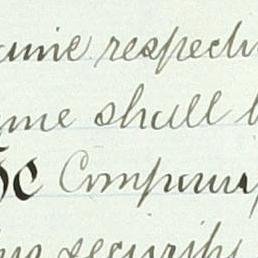 respecti
me shall b
he Company
security